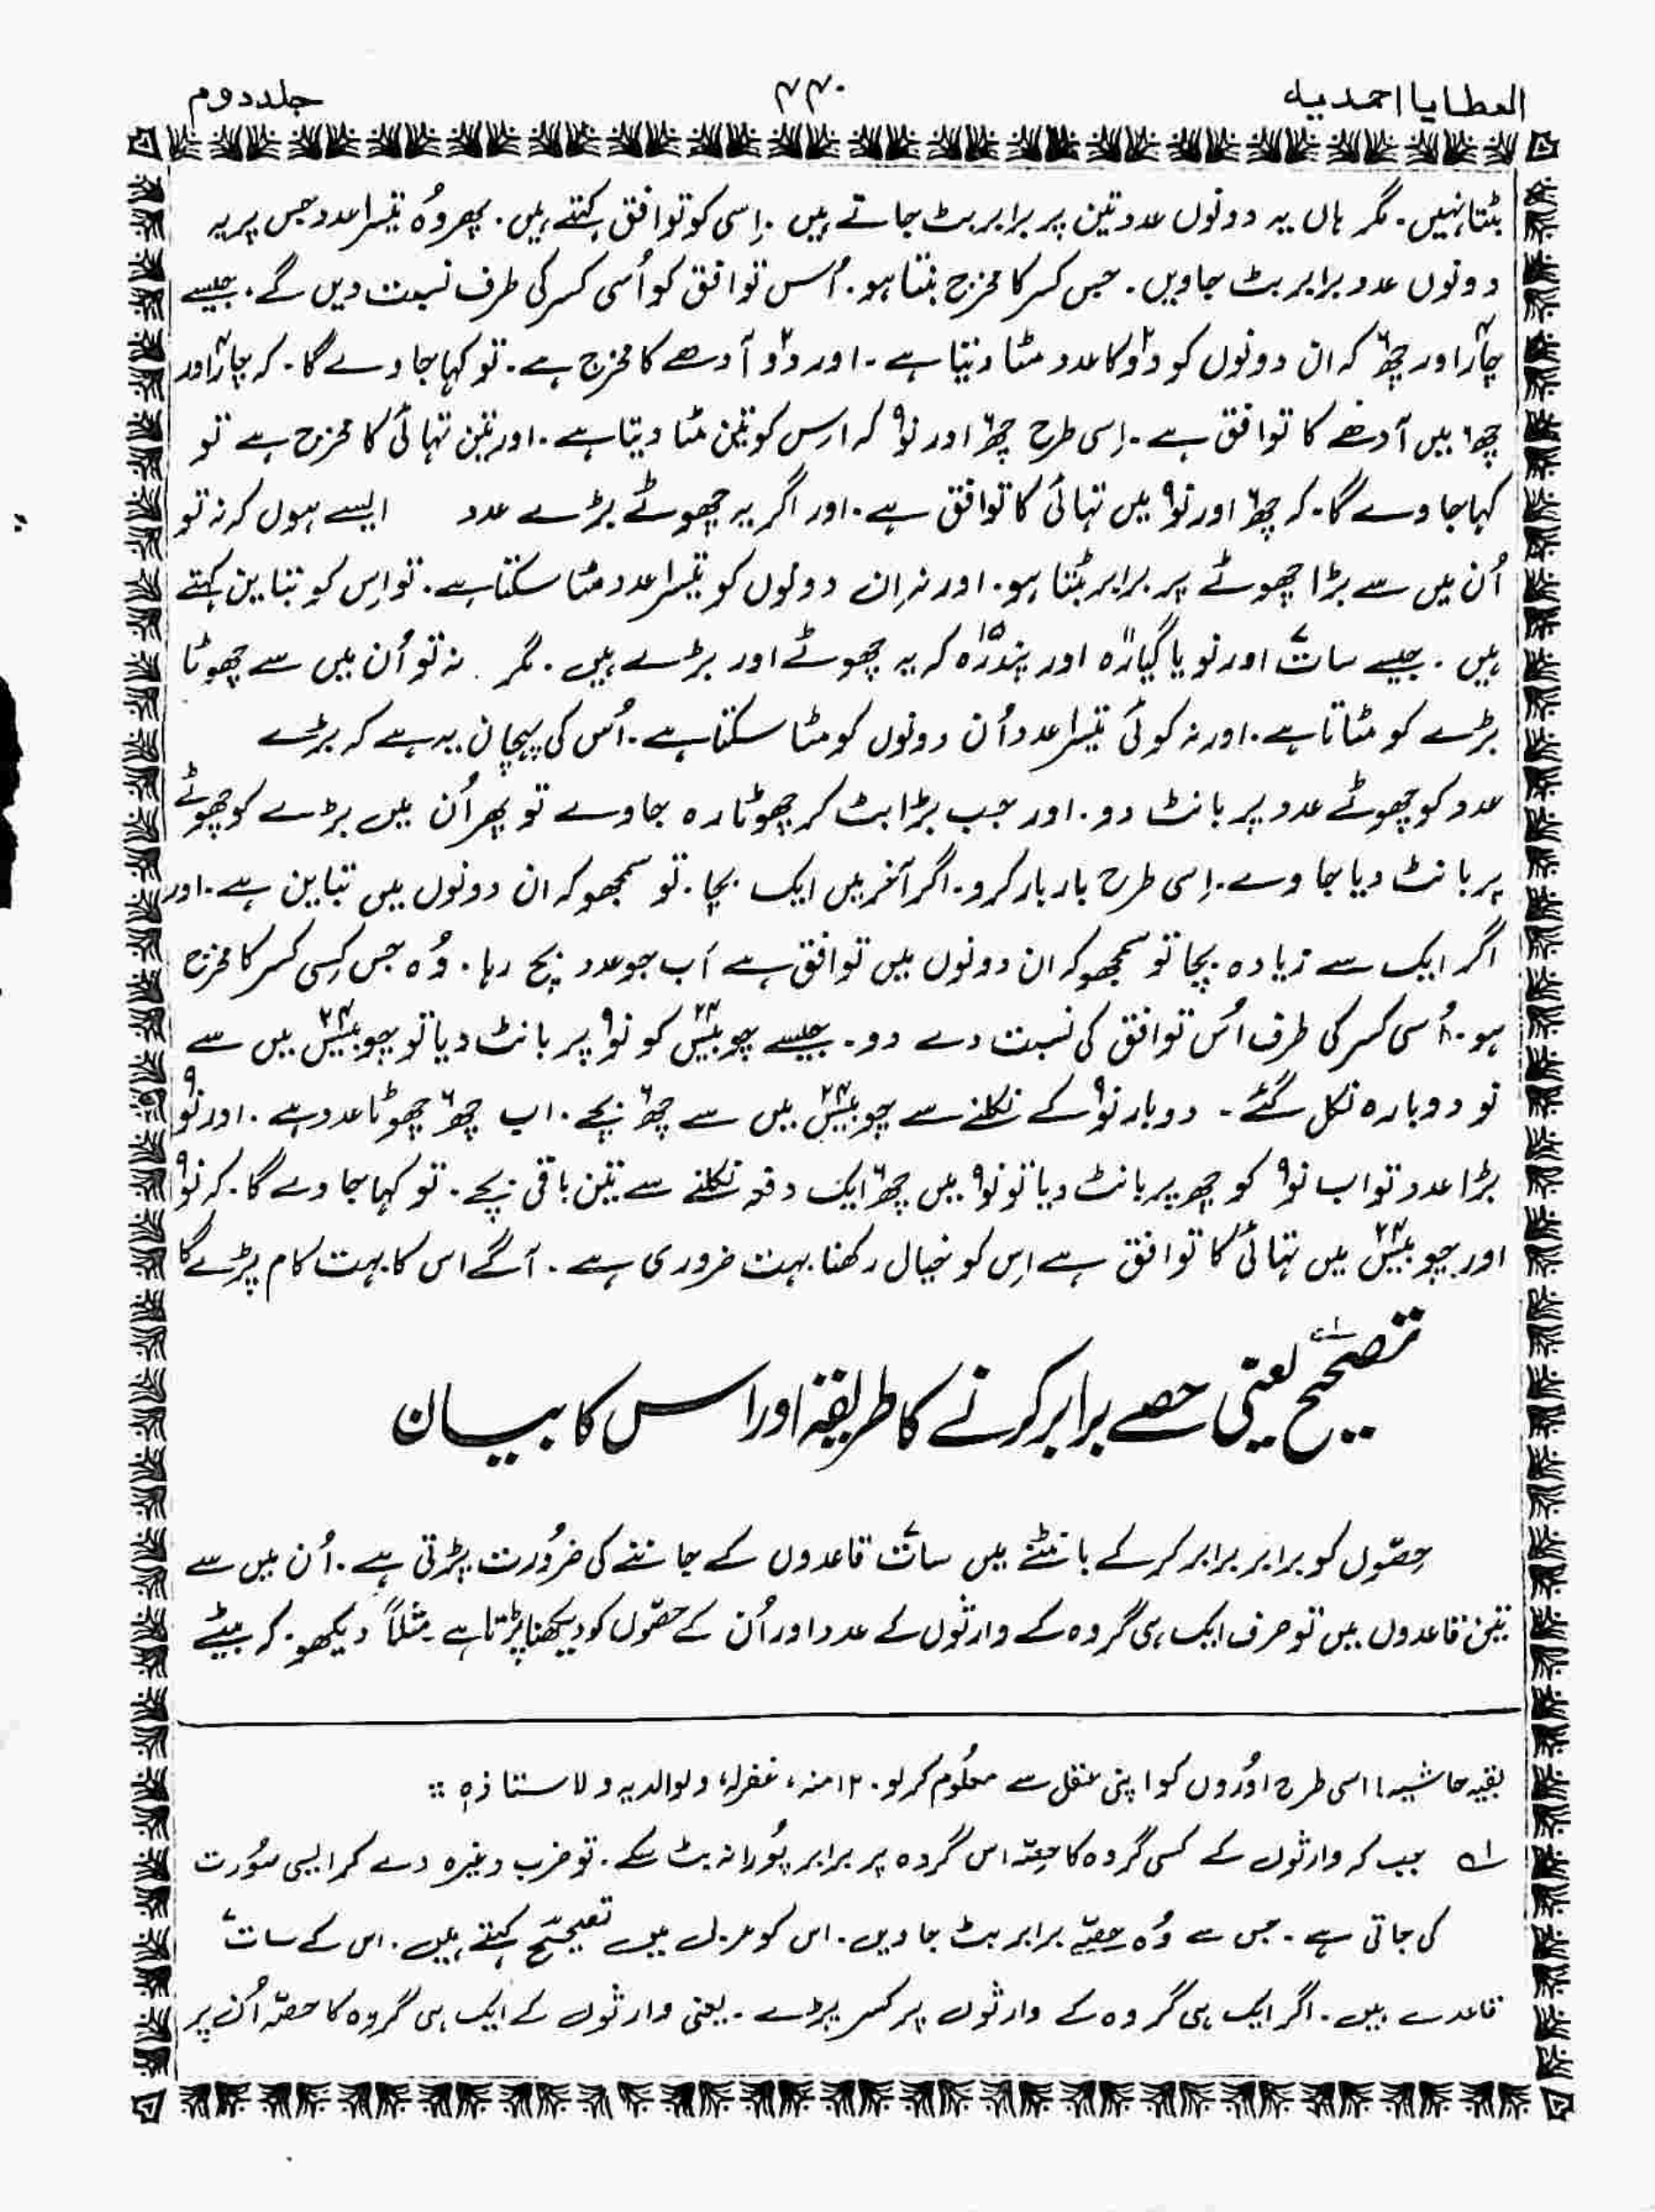 العطایا احمدیہ
۴۴۰
جلد دوم
بٹتا نہیں۔ مگر ہاں یہ دونوں عدد تین پر برابر بٹ جاتے ہیں۔ اِسی کو توافق کہتے ہیں۔ پھر وُہ تیسرا عدد جس پر یہ
دونوں عدد برابر بٹ جاویں۔ جس کسر کا مخرج بنتا ہو۔ اُس توافق کو اُسی کسر کی طرف نسبت دیں گے۔ جیسے
چار۴ اور چھ۶ کہ ان دونوں کو دو۲ کا عدد مٹا دیتا ہے۔ اور دو۲ آدھے کا مخرج ہے۔ تو کہا جاوے گا۔ کہ چار۴ اور
چھ۶ میں آدھے کا توافق ہے۔ اِسی طرح چھ۶ اور نو۹ کہ اس کو تین مٹا دیتا ہے۔ اور تین تہائی کا مخرج ہے تو
کہا جاوے گا۔ کہ چھ۶ اور نو۹ میں تہائی کا توافق ہے۔ اور اگر یہ چھوٹے بڑے عدد ایسے ہوں کہ نہ تو
اُن میں سے بڑا چھوٹے پر برابر بٹتا ہو۔ اور نہ ان دونوں کو تیسرا عدد مٹا سکتا ہے۔ تو اِس کو تباین کہتے
ہیں۔ جیسے سات۷ اور نو یا گیارہ۱۱ اور پندرہ۱۵ کہ یہ چھوٹے اور بڑے ہیں۔ مگر نہ تو اُن میں سے چھوٹا
بڑے کو مٹاتا ہے۔ اور نہ کوئی تیسرا عدد اُن دونوں کو مٹا سکتا ہے۔ اُس کی پہچان یہ ہے کہ بڑے
عدد کو چھوٹے عدد پر بانٹ دو۔ اور جب بڑا بٹ کر چھوٹا رہ جاوے تو پھر اُن میں بڑے کو چھوٹے
پر بانٹ دیا جاوے۔ اِسی طرح بار بار کرو۔ اگر آخر میں ایک بچا۔ تو سمجھو کہ ان دونوں میں تباین ہے۔ اور
اگر ایک سے زیادہ بچا تو سمجھو کہ ان دونوں میں توافق ہے اَب جو عدد بچ رہا۔ وُہ جس کِسی کسر کا مخرج
ہو۔ اُسی کسر کی طرف اُس توافق کی نسبت دے دو۔ جیسے چوبیس۲۴ کو نو۹ پر بانٹ دیا تو چوبیس۲۴ میں سے
نو دوبارہ نکل گئے۔ دوبار نو۹ کے نکلنے سے چوبیس۲۴ میں سے چھ۶ بچے۔ اب چھ۶ چھوٹا عدد ہے۔ اور نو۹
بڑا عدد تو اب نو۹ کو چھ پر بانٹ دیا تو نو۹ میں چھ۶ ایک دفہ نکلنے سے تین باقی بچے۔ تو کہا جاوے گا۔ کہ نو۹
اور چوبیس۲۴ میں تہائی کا توافق ہے اِس کو خیال رکھنا بہت ضروری ہے۔ آگے اس کا بہت کام پڑے گا
تصحیح لہ یعنی حصے برابر کرنے کا طریقہ اور اس کا بیان
حِصّوں کو برابر برابر کر کے بانٹنے میں سات۷ قاعدوں کے جاننے کی ضرُورت پڑتی ہے۔ اُن میں سے
تین قاعدوں میں تو صرف ایک ہی گروہ کے وارثوں کے عدد اور اُن کے حصّوں کو دیکھنا پڑتا ہے۔ مثلاً دیکھو۔ کہ بیٹے
بقیہ حاشیہ: اسی طرح اوروں کو اپنی عقل سے معلُوم کر لو۔ ۱۲ منہ، غفرلہٗ ولوالدیہ ولاستاذہٖ ::
لہ جب کہ وارثوں کے کسی گروہ کا حِصّہ اس گروہ پر برابر پُورا نہ بٹ سکے۔ تو ضرب وغیرہ دے کر ایسی صُورت
کی جاتی ہے۔ جس سے وُہ حِصّے برابر بٹ جاویں۔ اس کو عربی میں تصحیح کہتے ہیں۔ اس کے سات۷
قاعدے ہیں۔ اگر ایک ہی گروہ کے وارثوں پر کسر پڑے۔ یعنی وارثوں کے ایک ہی گروہ کا حصّہ اُن پر